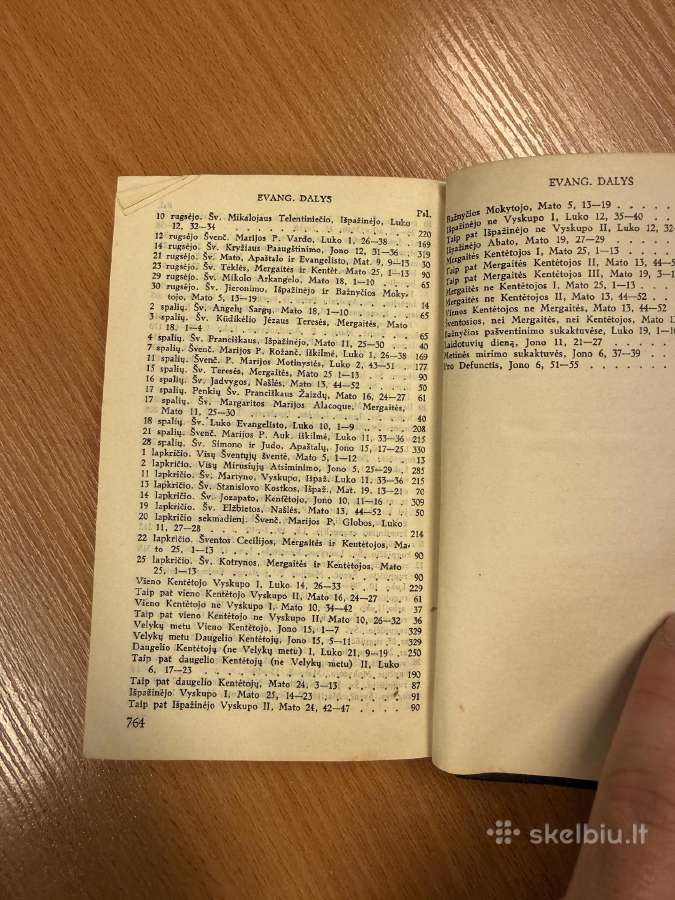 EVANG. DALYS
Psl.
10 rugsėjo. Šv. Mikalojaus Telentiniečio, Išpažinėjo, Luko
12, 32—34 . . . . . . . . . . . . . 220
12 rugsėjo Švenč. Marijos P. Vardo, Luko 1, 26—38 . . . . 169
14 rugsėjo. Šv. Kryžiaus Paaugštinimo, Jono 12, 31—36 . . . 319
21 rugsėjo. Šv. Mato, Apaštalo ir Evangelisto, Mat. 9, 9—13 30
23 rugsėjo. Šv. Teklės, Mergaitės ir Kentėt. Mato 25, 1—13 . 90
29 rugsėjo. Šv. Mikolo Arkangelo, Mato 18, 1—10 . . . . 65
30 rugsėjo. Šv. Jieronimo, Išpažinėjo ir Bažnyčios Moky-
tojo, Mato 5, 13—19 . . . . . . . . . . 14
2 spalių. Šv. Angelų Sargų, Mato 18, 1—10 . . . . . 65
3 spalių. Šv. Kūdikėlio Jėzaus Teresės, Mergaitės, Mato
18, 1—4 . . . . . . . . . . . . . 65
4 spalių. Šv. Pranciškaus, Išpažinėjo, Mato 11, 25—30 . . . 40
7 spalių. Švenč. Marijos P. Rožanč. iškilmė, Luko 1, 26—38 169
11 spalių. Švenč. P. Marijos Motinystės, Luko 2, 43—51 . . . 177
15 spalių. Šv. Teresės, Mergaitės, Mato 25 1—13 . . . . . 90
16 spalių. Šv. Jadvygos, Našlės, Mato 13, 44—52 . . . . . 50
17 spalių. Penkių Šv. Pranciškaus Žaizdų, Mato 16, 24—27 . 61
17 spalių. Šv. Margaritos Marijos Alacoque, Mergaitės,
Mato 11, 25—30 . . . . . . . . . . . 40
18 spalių. Šv. Luko Evangelisto, Luko 10, 1—9 . . . . . 208
21 spalių. Švenč. Marijos P. Auk. iškilmė, Luko 11, 33—36 . 215
28 spalių. Šv. Simono ir Judo, Apaštalų, Jono 15, 17—25 . . 330
1 lapkričio. Visų Šventųjų šventė, Mato 5, 1—12 . . . . 13
2 lapkričio. Visų Mirusiųjų Atsiminimo, Jono 5, 25—29 . . . 285
11 lapkričio. Šv. Martyno, Vyskupo, Išpaž. Luko 11. 33—36 . 215
13 lapkričio. Šv. Stanislovo Kostkos, Išpaž., Mat. 19. 13—21 . 70
14 lapkričio. Šv. Jozapato, Kentėtojo, Jono 10, 11—16 . . . 309
19 lapkričio. Šv. Elžbietos, Našlės, Mato 13, 44—52 . . . . 50
20 lapkričio sekmadienį. Švenč. Marijos P. Globos, Luko
11, 27—28 . . . . . . . . . . . . . 214
22 lapkričio. Šventos Cecilijos, Mergaitės ir Kentėtojos, Ma-
to 25, 1—13 . . . . . . . . . . . . 90
25 lapkričio. Šv. Kotrynos, Mergaitės ir Kentėtojos, Mato
25, 1—13 . . . . . . . . . . . . . 90
Vieno Kentėtojo Vyskupo I, Luko 14, 26—33 . . . . . 229
Taip pat vieno Kentėtojo Vyskupo II, Mato 16, 24—27 . . . 61
Vieno Kentėtojo ne Vyskupo I, Mato 10, 34—42 . . . . . 37
Taip pat vieno Kentėtojo ne Vyskupo II, Mato 10, 26—32 . 36
Velykų metu Vieno Kentėtojo, Jono 15, 1—7 . . . . . . 329
Velykų metu Daugelio Kentėtojų, Jono 15, 5—11 . . . . . 329
Daugelio Kentėtojų (ne Velykų metu) I, Luko 21, 9—19 . . 250
Taip pat daugelio Kentėtojų (ne Velykų metu) II, Luko
6, 17—23 . . . . . . . . . . . . . 190
Taip pat daugelio Kentėtojų, Mato 24, 3—13 . . . . . . 87
Išpažinėjo Vyskupo I, Mato 25, 14—23 . . . . . . . . 91
Taip pat Išpažinėjo Vyskupo II, Mato 24, 42—47 . . . . 90
764
EVANG. DALYS
Bažnyčios Mokytojo, Mato 5, 13—19 . . . .
Išpažinėjo ne Vyskupo I, Luko 12, 35—40 . .
Taip pat Išpažinėjo ne Vyskupo II, Luko 12, 32-
Išpažinėjo Abato, Mato 19, 27—29 . . . .
Mergaitės Kentėtojos I, Mato 25, 1—13 . . .
Taip pat Mergaitės Kentėtojos II, Mato 13, 44—5
Taip pat Mergaitės Kentėtojos III, Mato 19, 3—1
Mergaitės ne Kentėtojos I, Mato 25, 1—13 . .
Mergaitės ne Kentėtojos II, Mato 13, 44—52 . .
Vienos Kentėtojos ne Mergaitės, Mato 13, 44—52 .
Šventosios, nei Mergaitės, nei Kentėtojos, Mato 13
Bažnyčios pašventinimo sukaktuvėse, Luko 19, 1—10
Laidotuvių dieną, Jono 11, 21—27 . . . . .
Metinės mirimo sukaktuvės, Jono 6, 37—39 . . .
Pro Defunctis, Jono 6, 51—55 . . . . . .
skelbiu.lt